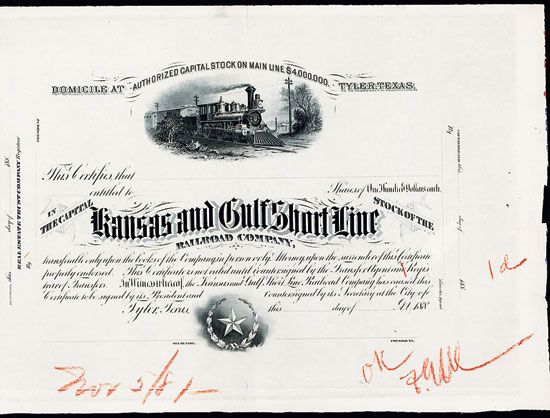 AUTHORIZED CAPITAL STOCK ON MAIN LINE $4,000,000.
DOMICILE AT TYLER, TEXAS.
This Certifies that
entitled to Shares of One Hundred Dollars each,
IN THE CAPITAL STOCK OF THE
Kansas and Gulf Short Line
RAILROAD COMPANY,
transferable only upon the books of the Company in person or by Attorney upon the surrender of this Certificate
properly endorsed. This Certificate is not valid until countersigned by the Transfer Agent & Regis-
trar of Transfers. In Witness whereof, the Kansas and Gulf Short Line Railroad Company has caused this
Certificate to be signed by its President and Countersigned by its Secretary at the City of
Tyler, Texas, this day of A.D. 188
SECRETARY. PRESIDENT.
REAL ESTATE TRUST COMPANY Registrar
this day of 188
By
By
day of
188
1d
Nov 5/81
OK